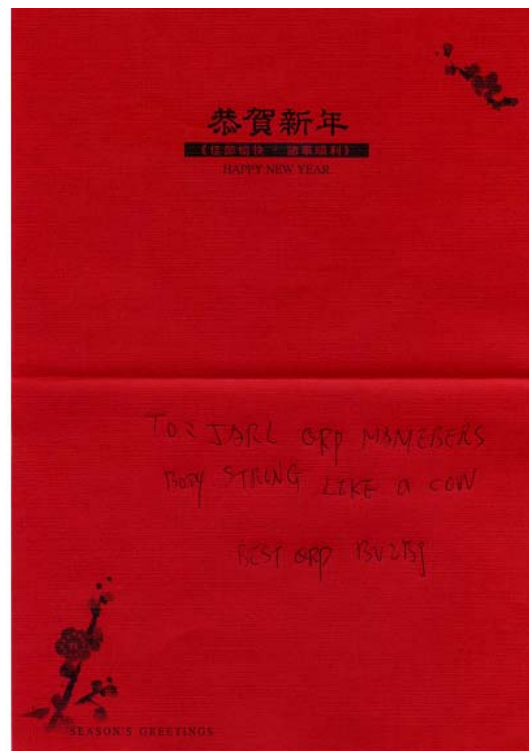 恭賀新年
《佳節愉快‧諸事順利》
HAPPY NEW YEAR
TO: JARL QRP MEMEBERS
BODY STRONG LIKE a COW
BEST QRP BV2BJ
SEASON'S GREETINGS